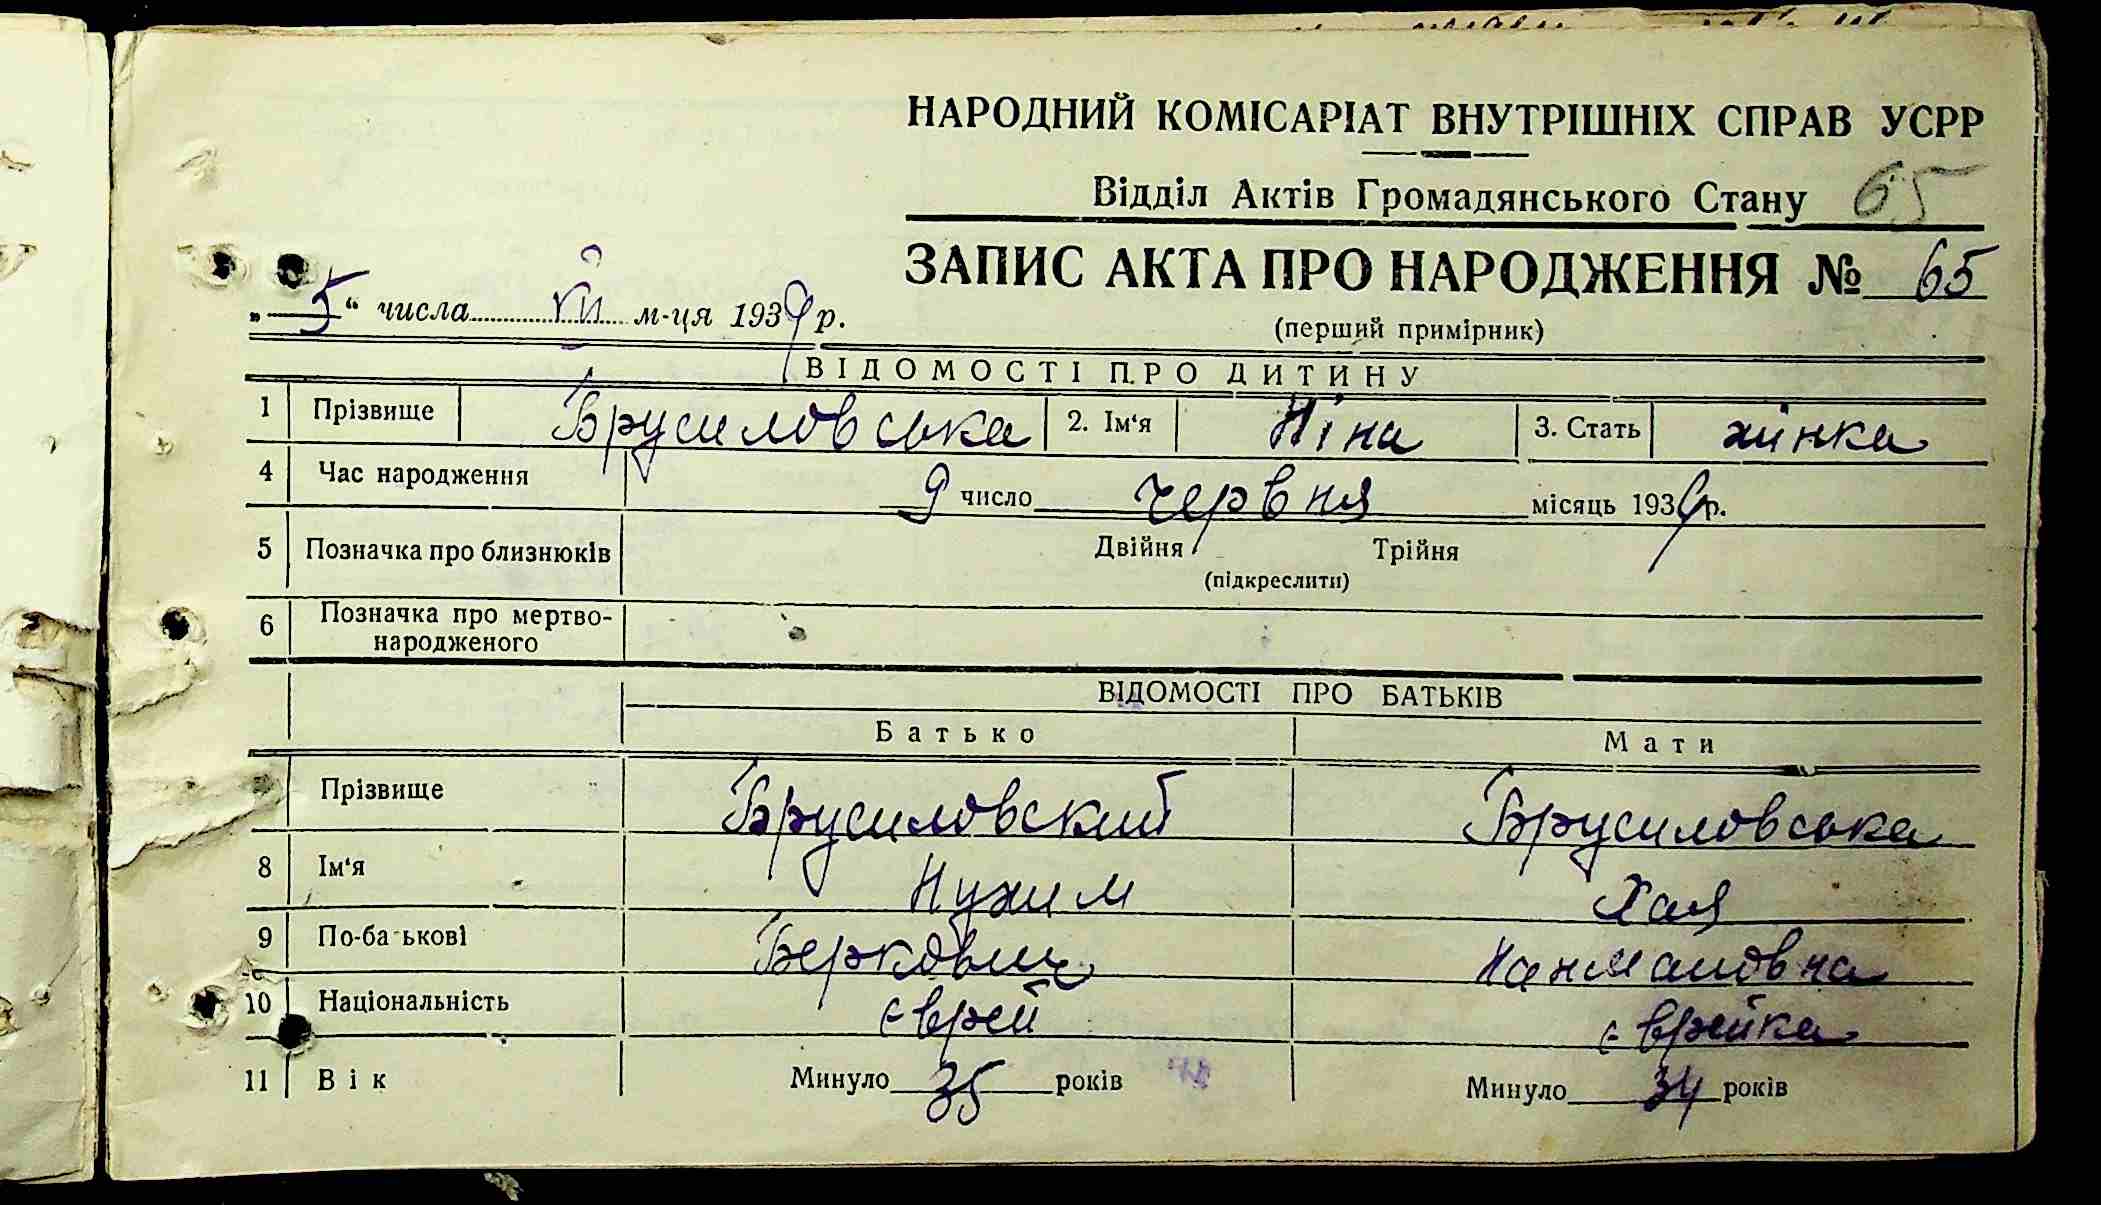 НАРОДНИЙ КОМІСАРІАТ ВНУТРІШНІХ СПРАВ УСРР
Відділ Актів Громадянського Стану 65
ЗАПИС АКТА ПРО НАРОДЖЕННЯ № 65
„ 5 “ числа VII м-ця 1939 р.
(перший примірник)
ВІДОМОСТІ ПРО ДИТИНУ
1 Прізвище Брусиловська 2. Ім‘я Ніна 3. Стать жінка
4 Час народження 9 число червня місяць 1939 р.
5 Позначка про близнюків Двійня Трійня
(підкреслити)
6 Позначка про мертво-
народженого
ВІДОМОСТІ ПРО БАТЬКІВ
Батько Мати
Прізвище Брусиловский Брусиловська
8 Ім‘я Нухим Хая
9 По-ба ькові Беркович Нахмановна
10 Національність єврей єврейка
11 Вік Минуло 35 років Минуло 34 років